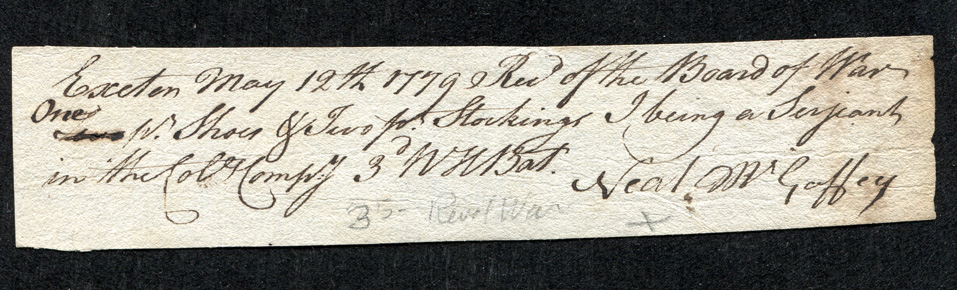 Exeter May 12th 1779 Recd of the Board of War
One
two pr. Shoes & Two pr. Stockings I being a Serjeant
in the Colo. Compy 3d N H Bat.
Neal McGaffey
35- Revol War